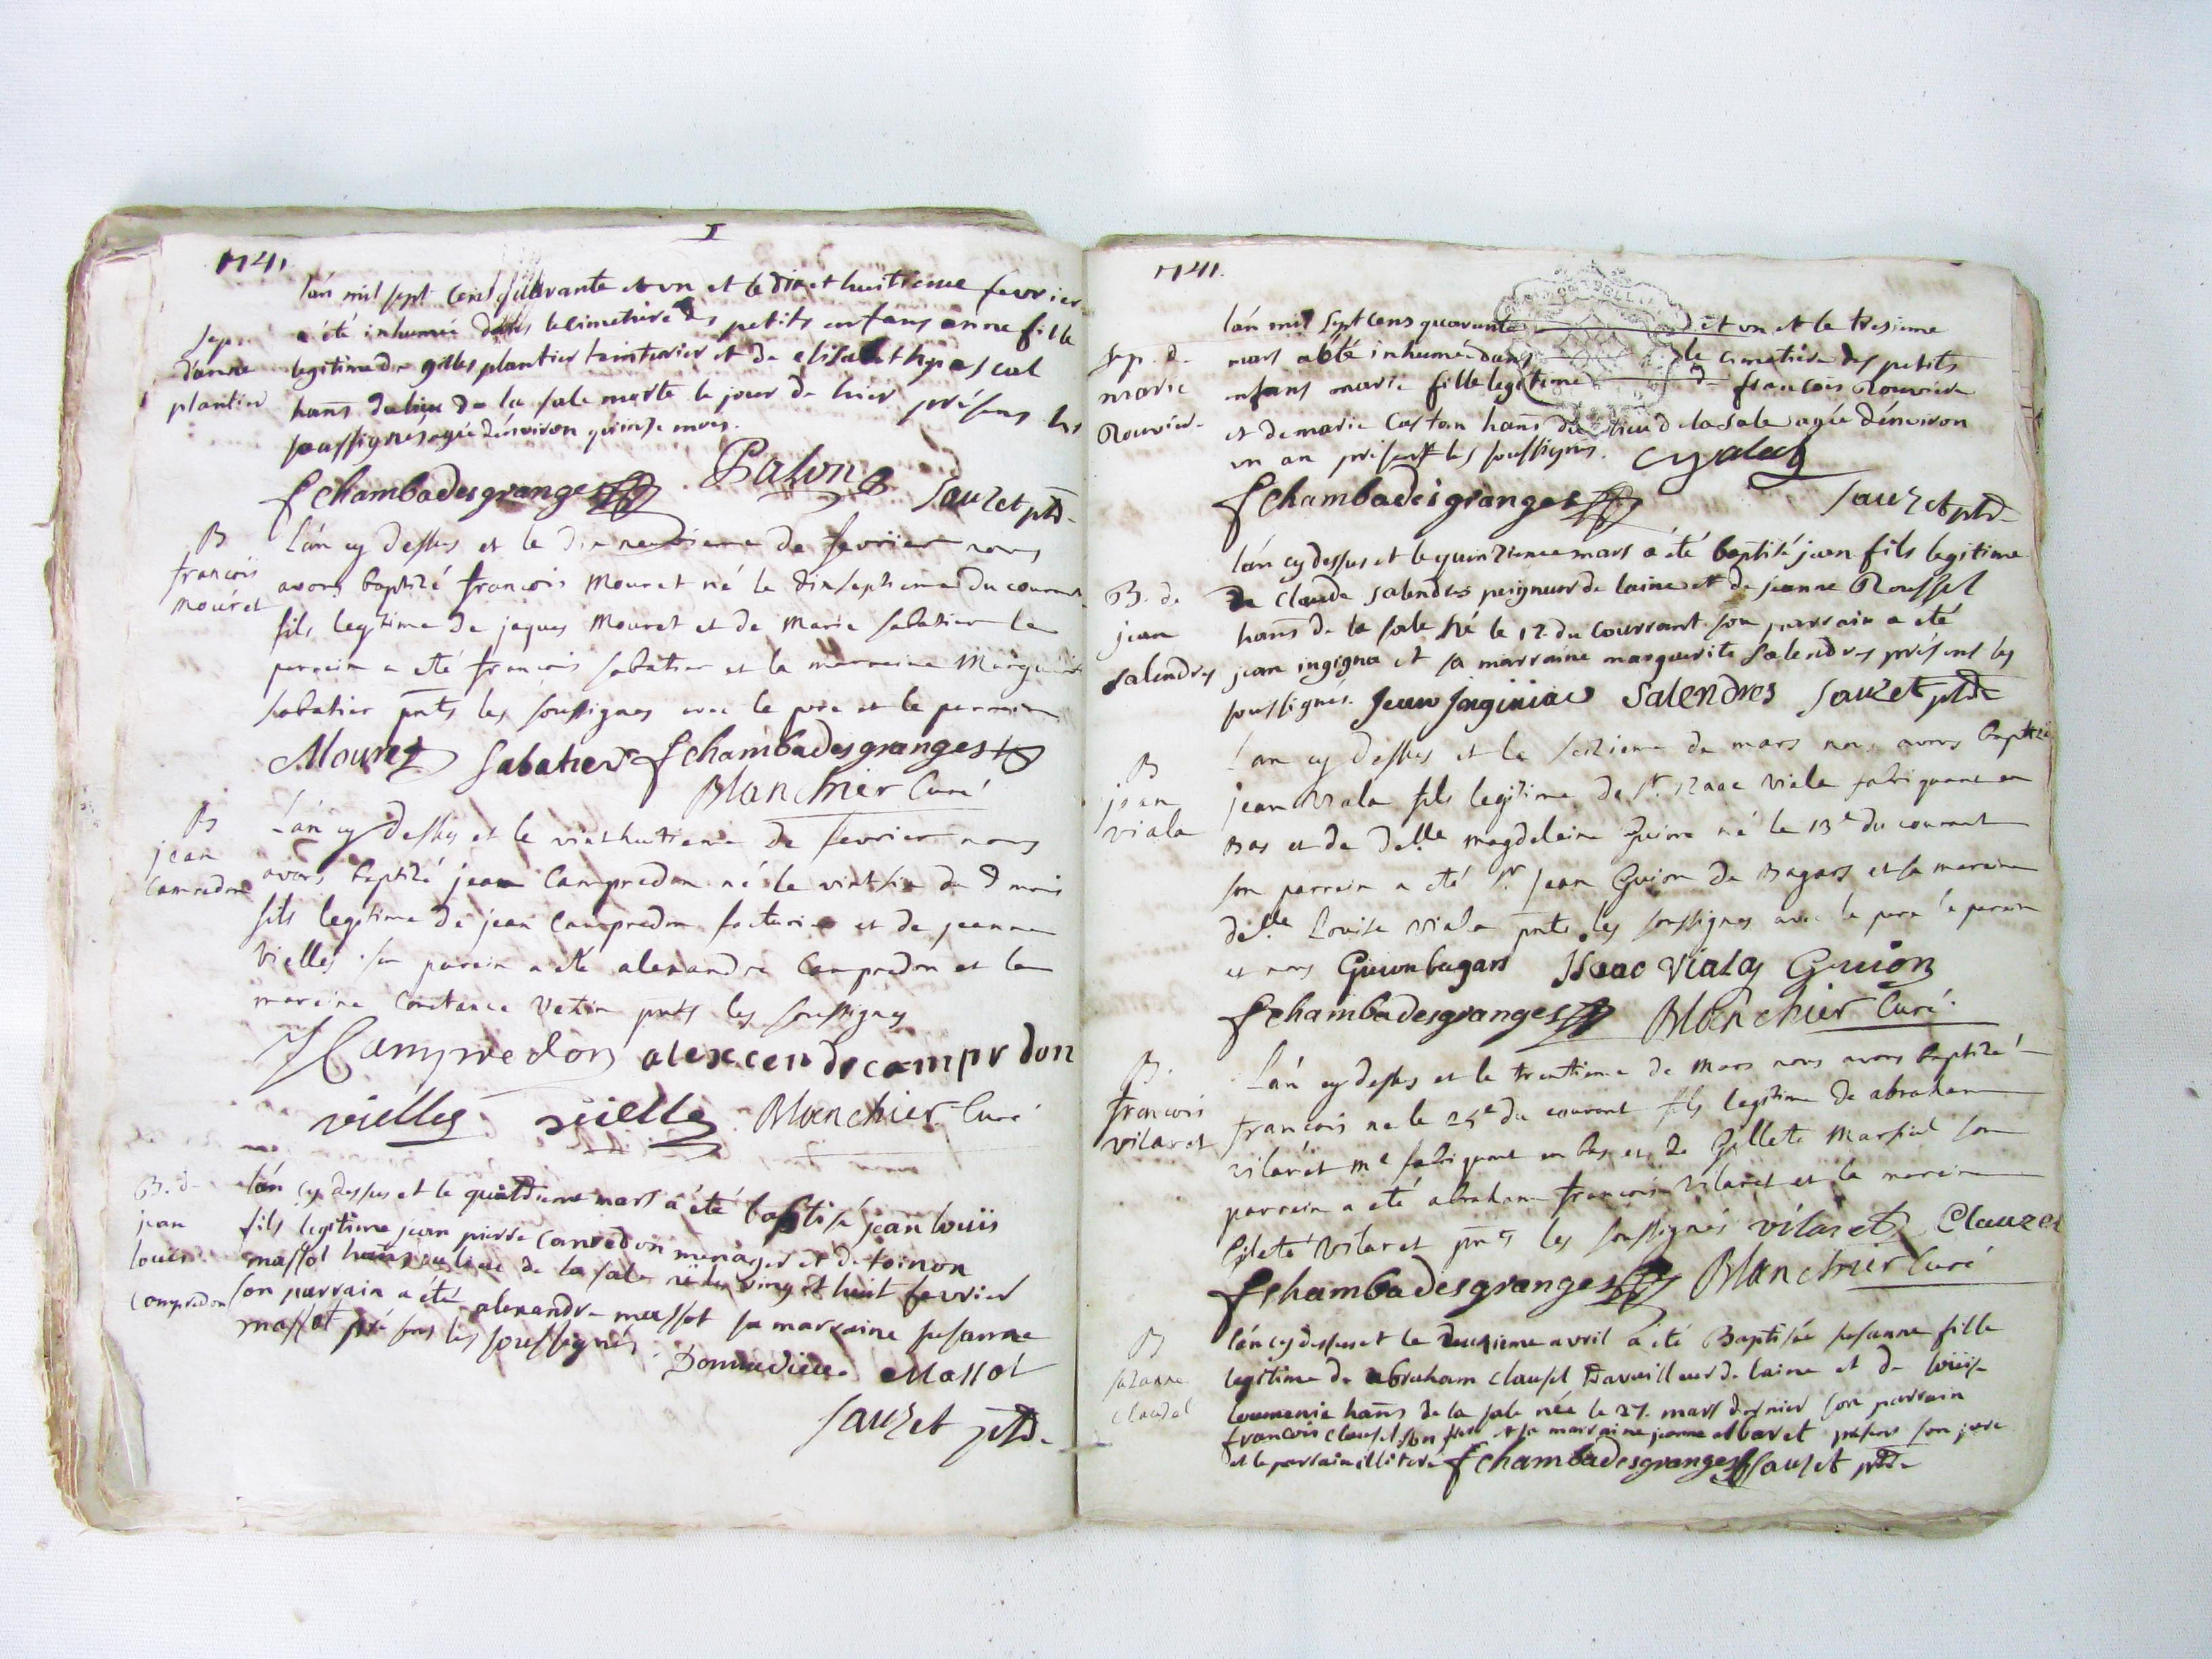 1741.
I
l'án mil sept cens quarante et un et le dix et huitieme fevrier
sep.
a été inhumée dans le cimetiere des petits enfans anne fille
d'anne
legitime de gilles plantier teinturier et de elisabeth pascal
plantier
hans du lieu de la sale morte le jour de hier présens les
soussignes agée d'environ quinse mois.
fchambadesgranges Salon Sauzet ptre
B
L'án cy dessus et le dix neuvieme de fevrier nous
francois
avons baptizé francois Mouret né le dixseptieme du courant
Mouret
fils legitime de jaques Mouret et de Marie sabatier le
parrein a eté francois sabatier et la marreine Marguerite
Sabatier pnts les soussignes avec le pere et le parrein
Mouret Sabatier fchambadesgranges
Blanchier Curé
B
L'án cy dessus et le vint huitieme de fevrier nous
jean
avons baptizé jean Campredon né le vintsix du d mois
Camredon
fils legitime de jean Campredon facturier et de jeanne
Vielles son parein a eté alexandre Campredon et la
mareine Constance Vezin pnts les soussignes
JCampredon alexcendrcamprdon
vielles vielles Blanchier Curé
B. de
l'án cy dessus et le quatrieme mars a été baptisé jean louïs
jean
fils legitime jean pierre Camredon menager et de toinon
louis
massot hans du lieu de la sale né le vingt et huit fevrier
Compredon
son parrain a été alexandre massot sa marraine susanne
massot présens les soussignés. Donnedieu Massot
Sauzet ptre
1741.
l'án mil sept cens quarante et un et le tresieme
sep. de
mars a été inhumée dans le cimetiére des petits
marie
enfans marie fille legitime de francois Rouviere
Rouviere
et de marie Castan hans du lieu de la sale agée d'environ
un an présens les soussignes.
fchambadesgranges Sauzet ptre
l'án cy dessus et le quinzieme mars a été baptisé jean fils legitime
B. de
de Claude salendres peigneur de laine et de jeanne Roussel
jean
hans de la sale né le 12 du courrant son parrain a eté
salendres
jean ingigna et sa marraine marguerite salendres présens les
soussignés. Jean Salendres Sauzet ptre
B
L'an cy dessus et le seizieme de mars nous avons baptizé
jean
jean viala fils legitime de Sr. Izaac viala fabriquant en
viala
Bas et de delle. magdeleine Guion né le 13e du courant
son parrein a eté Sr. jean Guion de Bagars et sa mareine
delle Louise viala pnts les soussignes avec le pere le parein
et nous Guion bagars Isaac Viala Guion
fchambadesgranges Blanchier Curé
B.
L'án cy dessus et le trentieme de Mars nous avons baptizé
francois
francois né le 25e du courant fils legitime de abraham
vilaret
vilaret me fabriquant en bas et de Gillete Martial son
parrein a eté abraham francois Vilaret et la mareine
Gilete Vilaret pnts les soussignés vilaret Clauzel
fchambadesgranges Blanchier Curé
B
l'án cy dessus et le deuxieme avril a été Baptisée susanne fille
suzanne
legitime de abraham clausel travailleur de laine et de louïse
clauzel
hans de la sale née le 27. mars dernier son parrain
francois clausel son frere et sa marraine jeanne albaret présens son pere
et le parrain illiteré fchambadesgranges Sauzet ptre